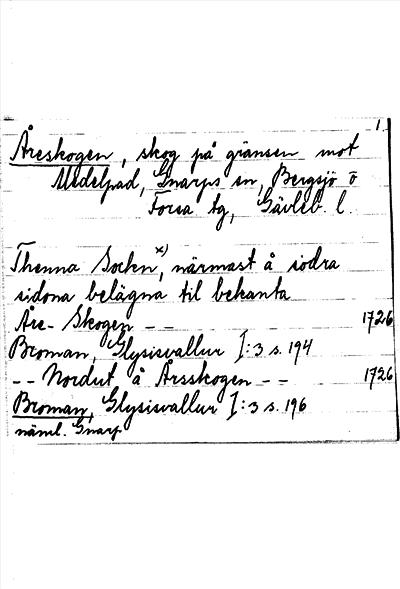 1.
Åreskogen, skog på gränsen mot
Medelpad, Gnarps sn, Bergsjö o
Forsa tg, Gävleb. l.
Thenna Sochn x), närmast å södra
sidona belägna til bekanta
Åre-Skogen -- 1726
Broman, Glysisvallur I:3 s. 194
-- Nordut å Årsskogen -- 1726
Broman, Glysisvallur I:3 s. 196
näml. Gnarp